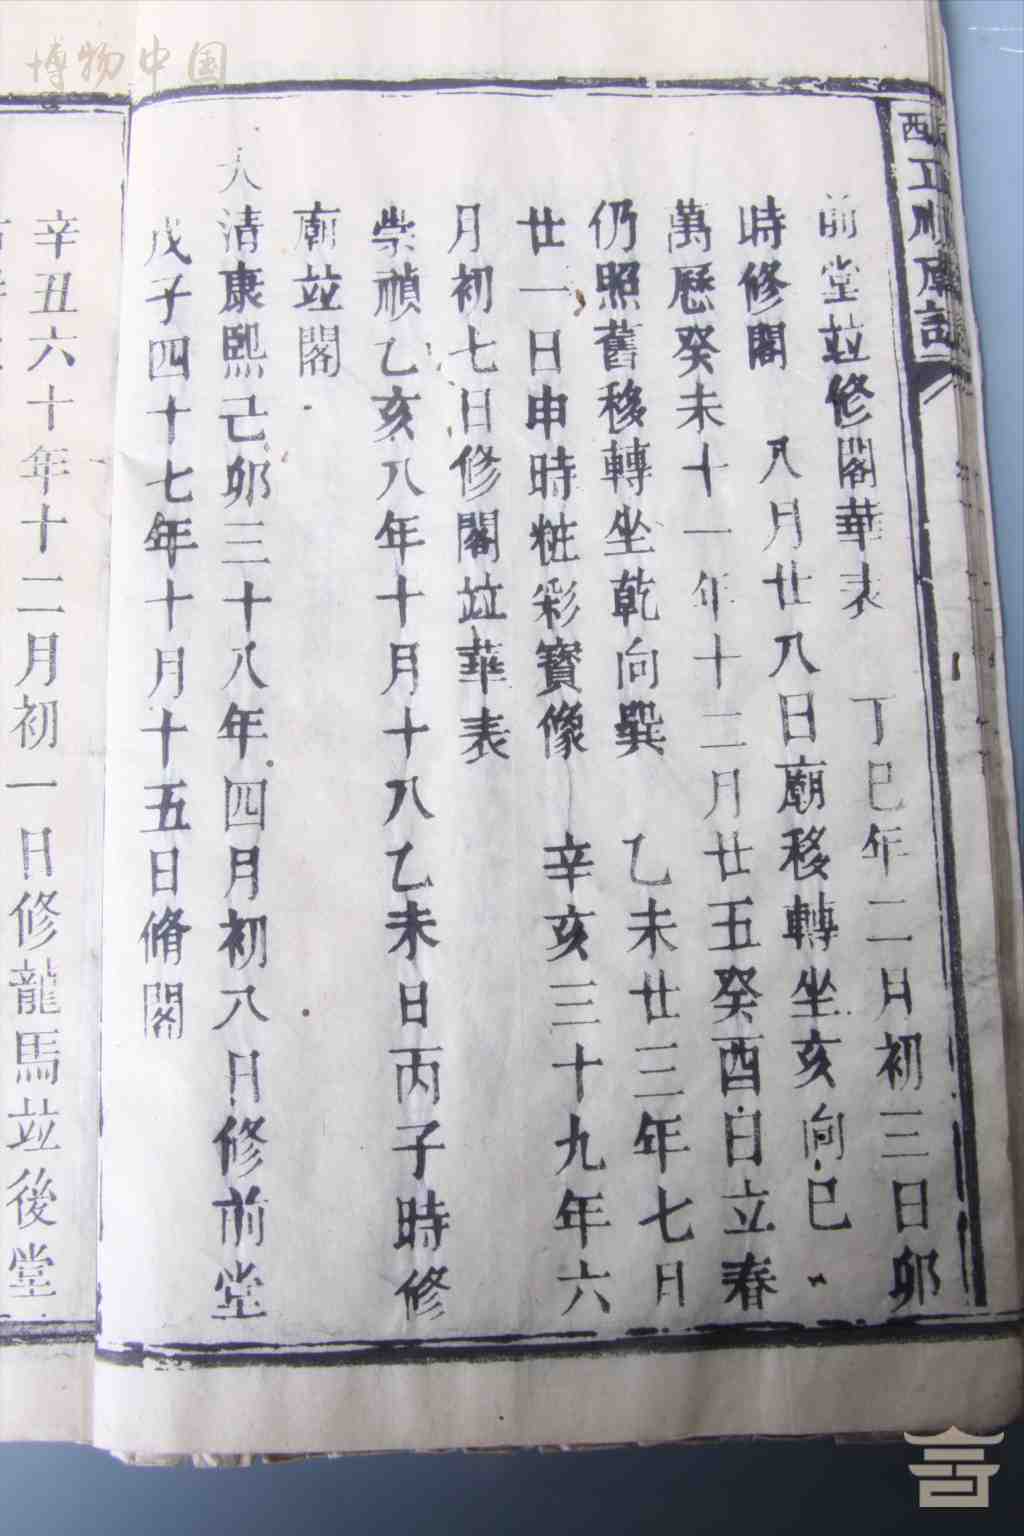 博物中国
前堂竝修閣華表　丁巳年二月初三日卯
時修閣　八月廿八日廟移轉坐亥向巳
萬曆癸未十一年十二月廿五癸酉日立春
仍照舊移轉坐乾向巽　乙未廿三年七月
廿一日申時粧彩寶像　辛亥三十九年六
月初七日修閣竝華表
崇禎乙亥八年十月十八乙未日丙子時修
廟竝閣
大清康熙己卯三十八年四月初八日修前堂
戊子四十七年十月十五日脩閣
辛丑六十年十二月初一日修龍馬竝後堂